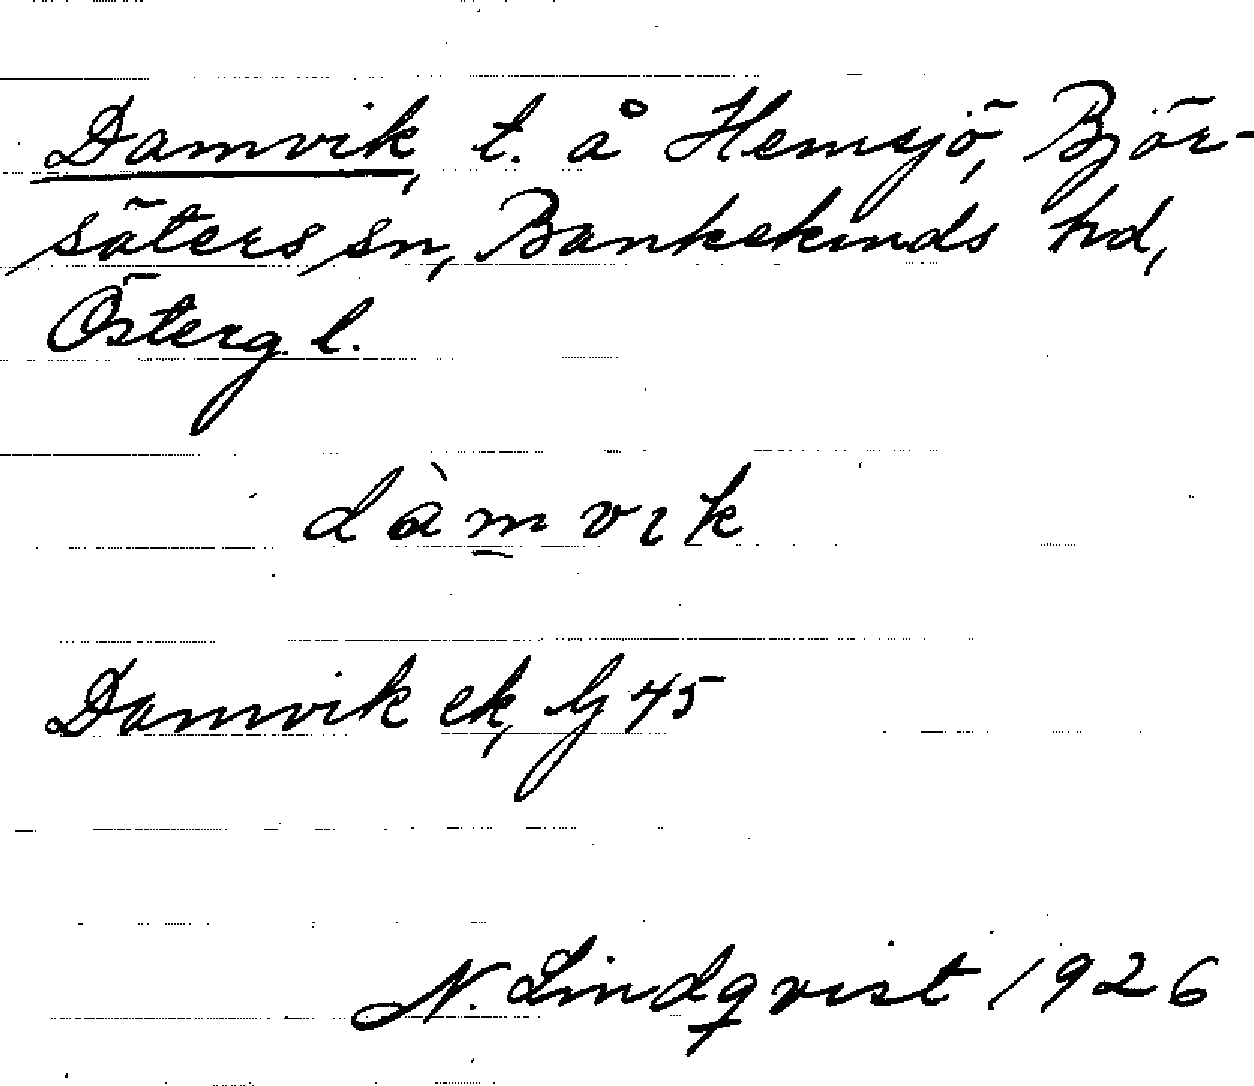 Damvik, t. å Hemsjö, Björ-
säters sn, Bankekinds hd,
Österg. l.
dàm̲vık
Damvik ek, bl 45
N. Lindqvist 1926